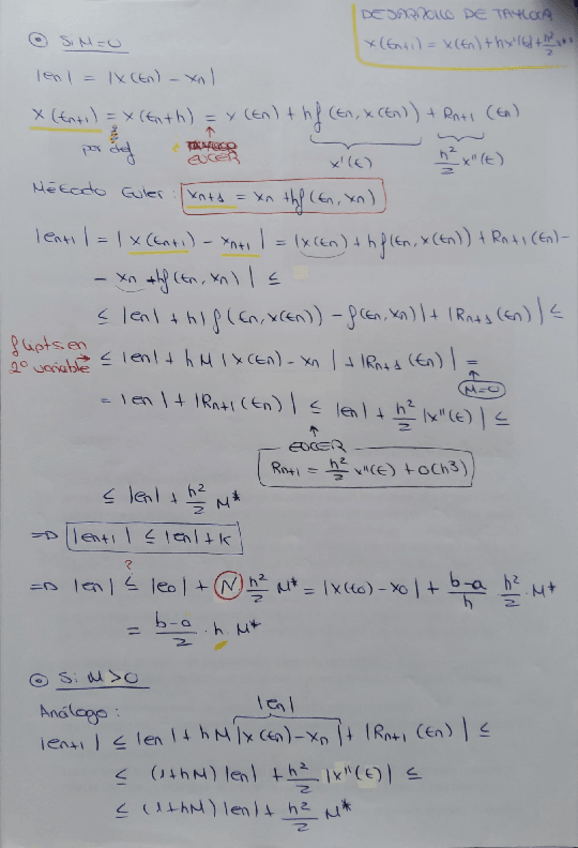 DESARROLLO DE TAYLOR
x(tn+1) = x(tn) + hx'(t) + h²/2 x''
⊙ Si M=0
|en| = |x(tn) - xn|
x(tn+1) = x(tn+h) = x(tn) + hf(tn, x(tn)) + Rn+1 (tn)
por def
EULER
x'(t)
h²/2 x''(t)
Método Euler: xn+1 = xn + hf(tn, xn)
|en+1| = |x(tn+1) - xn+1| = |x(tn) + hf(tn, x(tn)) + Rn+1(tn) -
- xn + hf(tn, xn)| ≤
≤ |en| + h|f(tn, x(tn)) - f(tn, xn)| + |Rn+1(tn)| ≤
f lipts. en
2º variable
≤ |en| + hM |x(tn) - xn| + |Rn+1(tn)| =
M=0
= |en| + |Rn+1(tn)| ≤ |en| + h²/2 |x''(t)| ≤
EULER
Rn+1 = h²/2 x''(t) + O(h³)
≤ |en| + h²/2 M*
⇒ |en+1| ≤ |en| + k
?
⇒ |en| ≤ |e0| + N h²/2 M* = |x(t0) - x0| + b-a/h h²/2 · M*
= b-a/2 · h · M*
⊙ Si M>0
Análogo:
|en|
|en+1| ≤ |en| + hM |x(tn) - xn| + |Rn+1(tn)| ≤
≤ (1+hM) |en| + h²/2 |x''(t)| ≤
≤ (1+hM) |en| + h²/2 M*